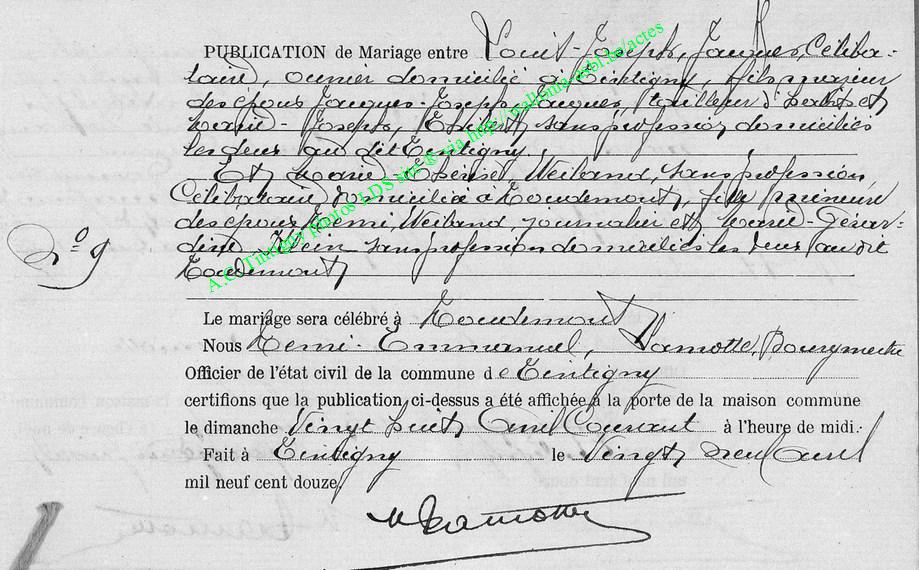 PUBLICATION de Mariage entre Louis-Joseph, Jacques, Céliba-
taire, ouvrier domicilié à Tintigny, fils majeur
des époux Jacques-Joseph, Jacques, tailleur d'habits et
Marie-Joseph, sans profession domiciliés
les deux au dit Tintigny.
Et Marie-Thérèse, Weiland, sans profession,
Célibataire domiciliée à Houdemont, fille
des époux Henri, Weiland, journalier et Marie-Gérar-
dine, sans profession domiciliés les deux au dit
Houdemont
Nº 9
Le mariage sera célébré à Houdemont
Nous Henri-Emmanuel, Lamotte, Bourgmestre
Officier de l'état civil de la commune de Tintigny
certifions que la publication ci-dessus a été affichée à la porte de la maison commune
le dimanche Vingt huit Avril Courant à l'heure de midi.
Fait à Tintigny le Vingt neuf Avril
mil neuf cent douze,
Lamotte
A.C. Tintigny photos LDS site @ via http://wallonia-asbl.be/actes